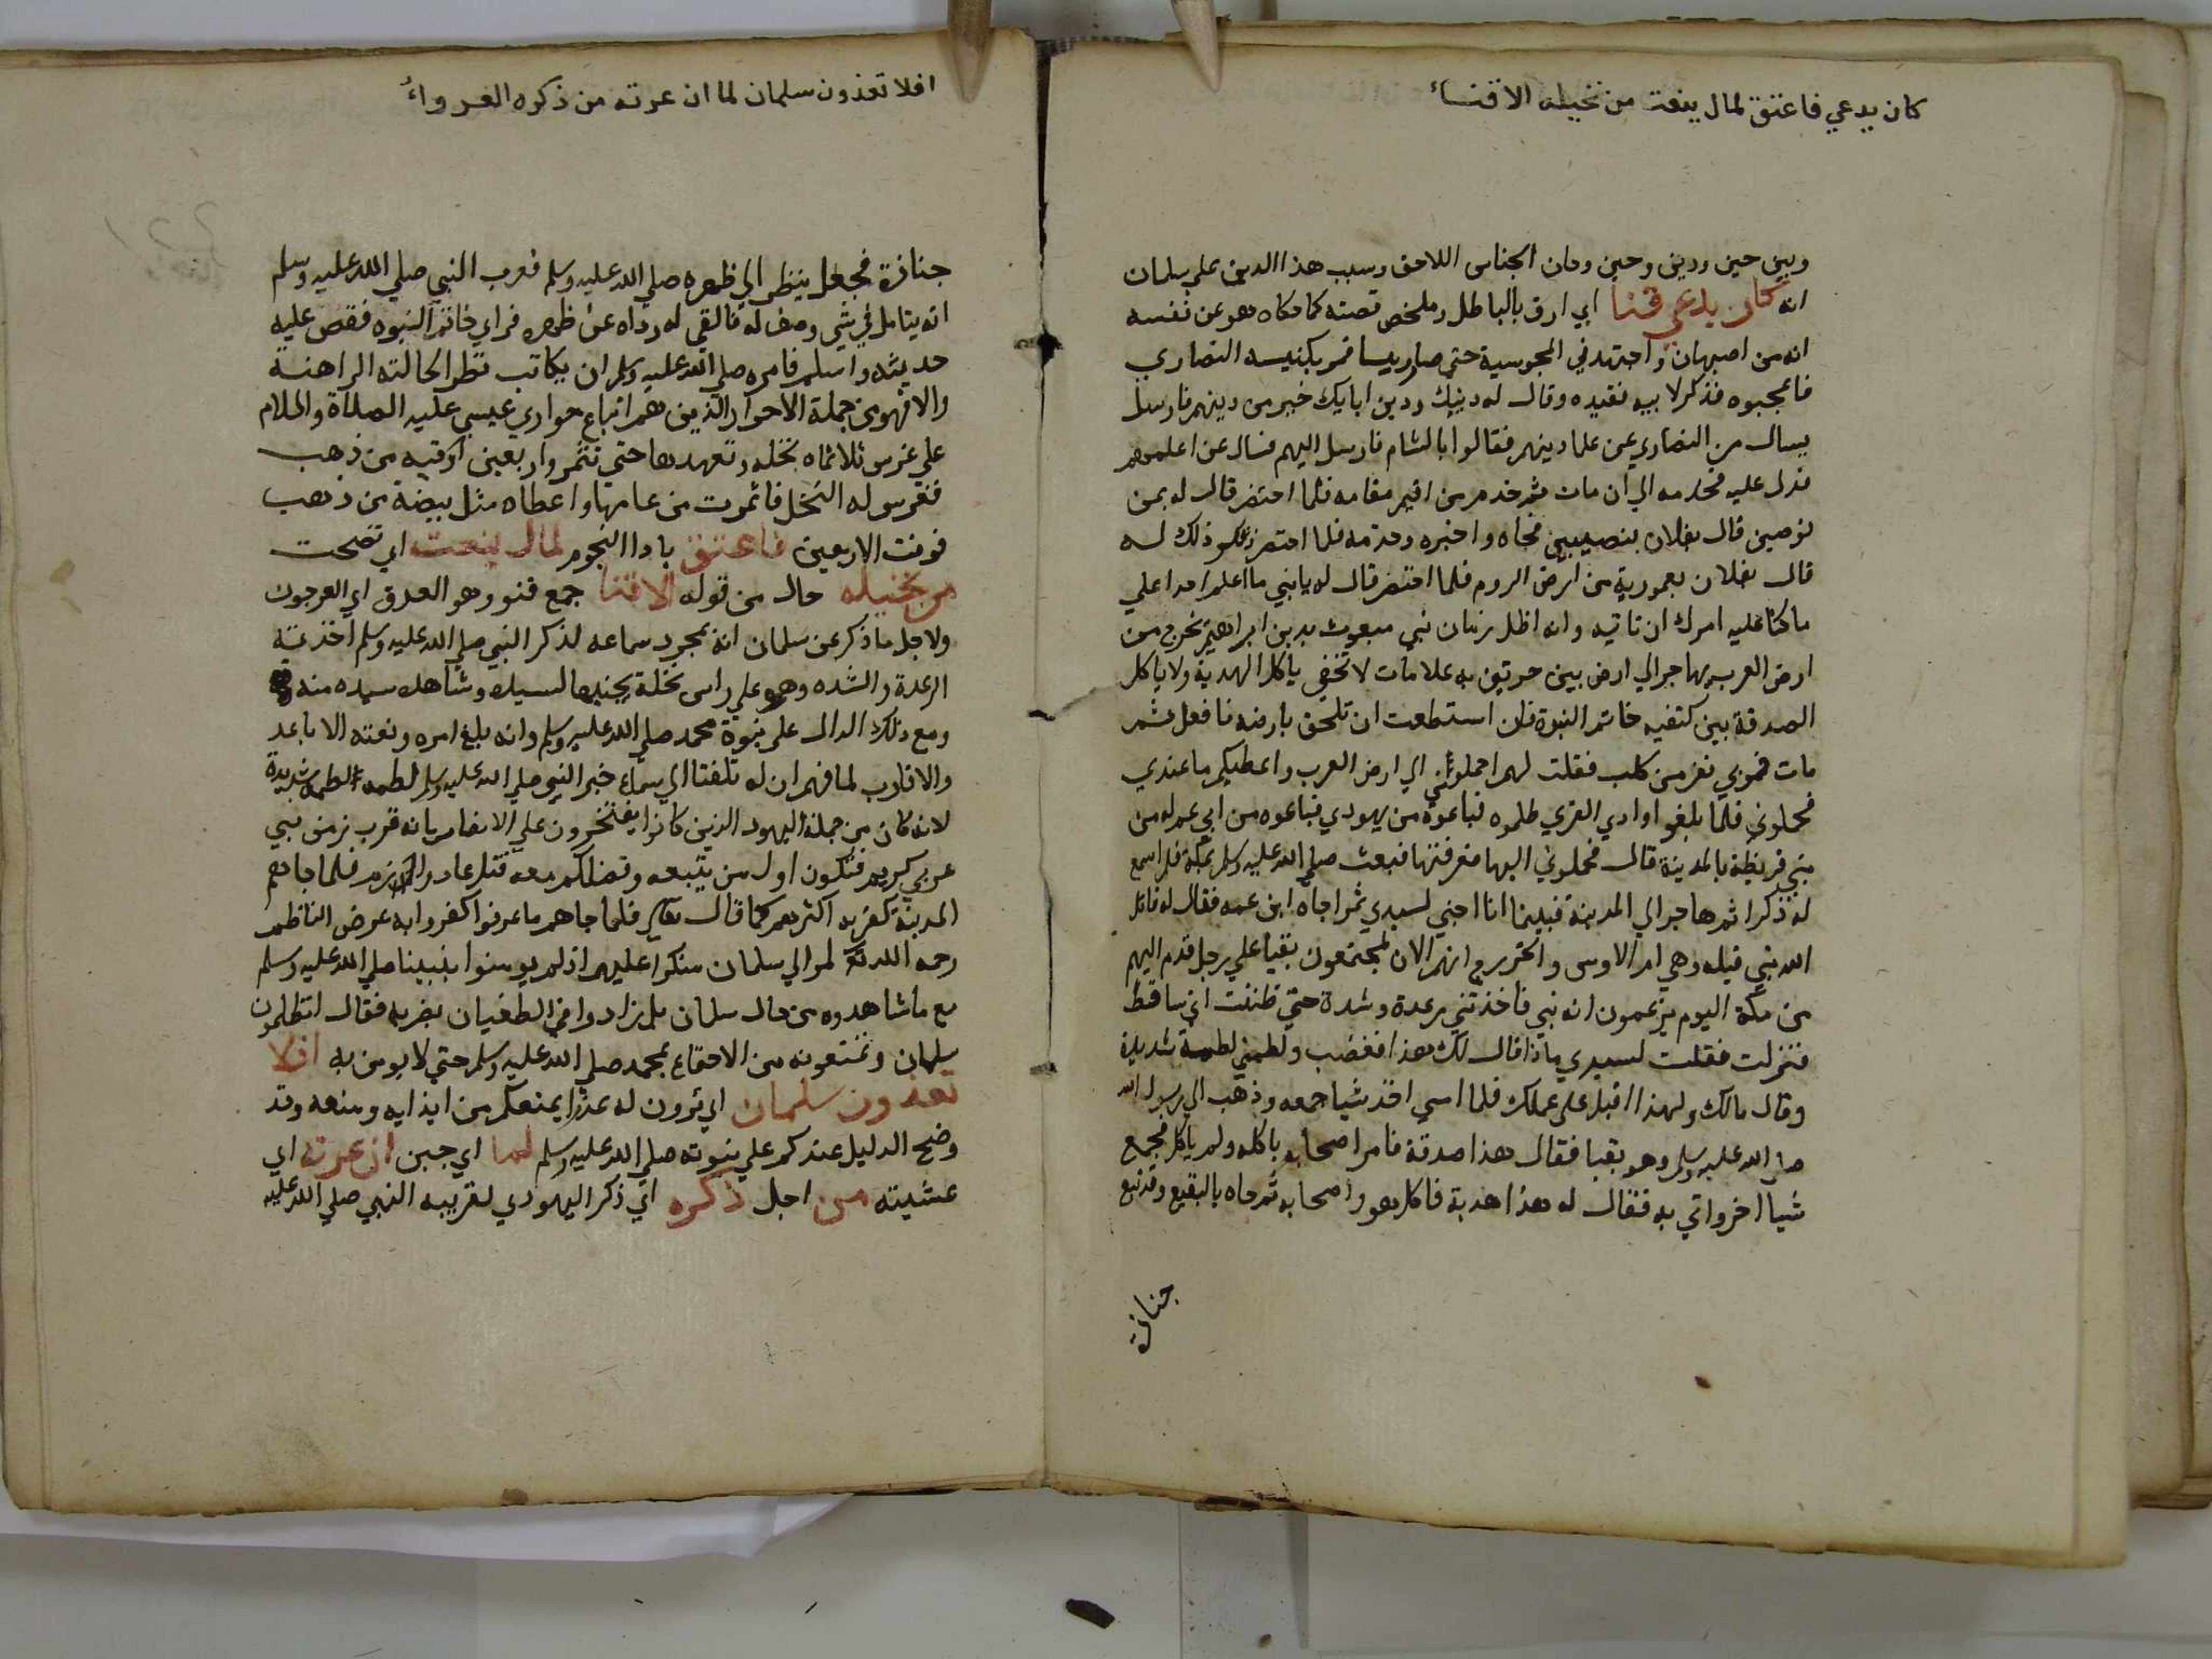 كان يدعي فاعتق لمال ينعت من نخيله الاقناء
وبين حين ودين وحين وحان الجناس اللاحق وسبب هذا الدين علي سلمان
انه كان يدعي قنا اي ارق بالباطل وملخص قصته كما حكاه هو عن نفسه
انه من اصبهان واجتهد في المجوسية حتي صار ريسا فمر بكنيسه النصاري
فاعجبوه فذكر لابيه فقيده وقال له دينك ودين ابايك خير من دينهم فارسل
يسال من النصاري عن علما دينهم فقالوا بالشام فارسل اليهم فسال عن اعلمهم
فدل عليه فخدمه الي ان مات ثم خدم من اقيم مقامه فلما احتضر قال له بمن
توصين قال بفلان بنصيبين فجاه واخبره وخدمه فلما احتضر ذكر ذلك له
قال بفلان بعمورية من ارض الروم فلما احتضر قال له يا بني ما اعلم احدا علي
ما كنا عليه امرك ان تاتيه وانه اظل زمان نبي مبعوث بدين ابراهيم يخرج من
ارض العرب يهاجر الي ارض بين حرتين به علامات لا تخفي ياكل الهدية ولا ياكل
الصدقة بين كتفيه خاتم النبوة فان استطعت ان تلحق بارضه فافعل ثم
مات فمر بي نفر من كلب فقلت لهم احملوني الي ارض العرب واعطيكم ما عندي
فحملوني فلما بلغوا وادي القري ظلموه فباعوه من يهودي فباعوه من ابن عم له من
بني قريظة بالمدينة قال فحملوني اليها فعرفتها فبعث صلي الله عليه وسلم بمكة فلم اسمع
له ذكرا ثم هاجر الي المدينة فبينا انا اجني لسيدي ثمرا جاه ابن عمه فقال له قاتل
الله بني قيله وهي ام الاوس والخزرج انهم الان لمجتمعون بقبا علي رجل قدم اليهم
من مكة اليوم يزعمون انه نبي فاخذتني رعدة وشدة حتي ظننت اني ساقط
فنزلت فقلت لسيدي ماذا قال لك هذا فغضب ولطمني لطمة شديدة
وقال مالك ولهذا اقبل علي عملك فلما امسي اخذ شيا جمعه وذهب الي رسول الله
صلي الله عليه وسلم وهو بقبا فقال هذا صدقة فامر اصحابه باكله ولم ياكل فجمع
شيا اخر واتي به فقال له هذا هدية فاكل هو واصحابه ثم جاه بالبقيع وقد تبع
جنازة
افلا تعذرون سلمان لما ان عرته من ذكره العرواء
جنازة فجعل ينظر الي ظهره صلي الله عليه وسلم فعرف النبي صلي الله عليه وسلم
انه يتامل في شي وصف له فالقي له رداه عن ظهره فراي خاتم النبوه فقص عليه
حديثه واسلم فامره صلي الله عليه وسلم ان يكاتب نظرا لحالته الراهنة
والا فهو من جملة الاحرار الذين هم اتباع حواري عيسي عليه الصلاة والسلام
علي غرس ثلاثماه نخله وتعهدها حتي تثمر واربعين اوقيه من ذهب
فغرسوا له النخل فاثمرت من عامها واعطاه مثل بيضة من ذهب
فوفت الاربعين فاعتق بادا النجوم لمال ينعت اي نضجت
من نخيله حال من قوله الاقنا جمع قنو وهو العذق اي العرجون
ولاجل ما ذكر عن سلمان انه بمجرد سماعه لذكر النبي صلي الله عليه وسلم اخذته
الرعدة والشده وهو علي راس نخلة يجنيها لسيده وشاهد سيده منه
ومع ذلك الدال علي نبوة محمد صلي الله عليه وسلم وانه بلغ امره ونعته الاباعد
والاقارب لما فهم ان له تلفتا الي سماع خبر النبي صلي الله عليه وسلم لطمه اللطمة الشديدة
لانه كان من جملة اليهود الذين كانوا يفتخرون علي الانصار بانه قرب زمن نبي
عربي كريم فنكون اول من يتبعه ونقتلكم معه قتل عاد وارم فلما جاهم
المدينة كفر به اكثرهم كما قال تعالي فلما جاهم ما عرفوا كفروا به عرض الناظم
رحمه الله تعالي لموالي سلمان منكرا عليهم اذ لم يومنوا بنبينا صلي الله عليه وسلم
مع ما شاهدوه من حال سلمان بل زادوا في الطغيان بضربه فقال اتظلمون
سلمان وتمنعونه من الاجتماع بمحمد صلي الله عليه وسلم حتي لا يومن به افلا
تعذرون سلمان اي ترون له عذرا يمنعكم من ايذايه ومنعه وقد
وضح الدليل عندكم علي نبوته صلي الله عليه وسلم لما اي حين ان عرته اي
غشيته من اجل ذكره اي ذكر اليهودي لقريبه النبي صلي الله عليه